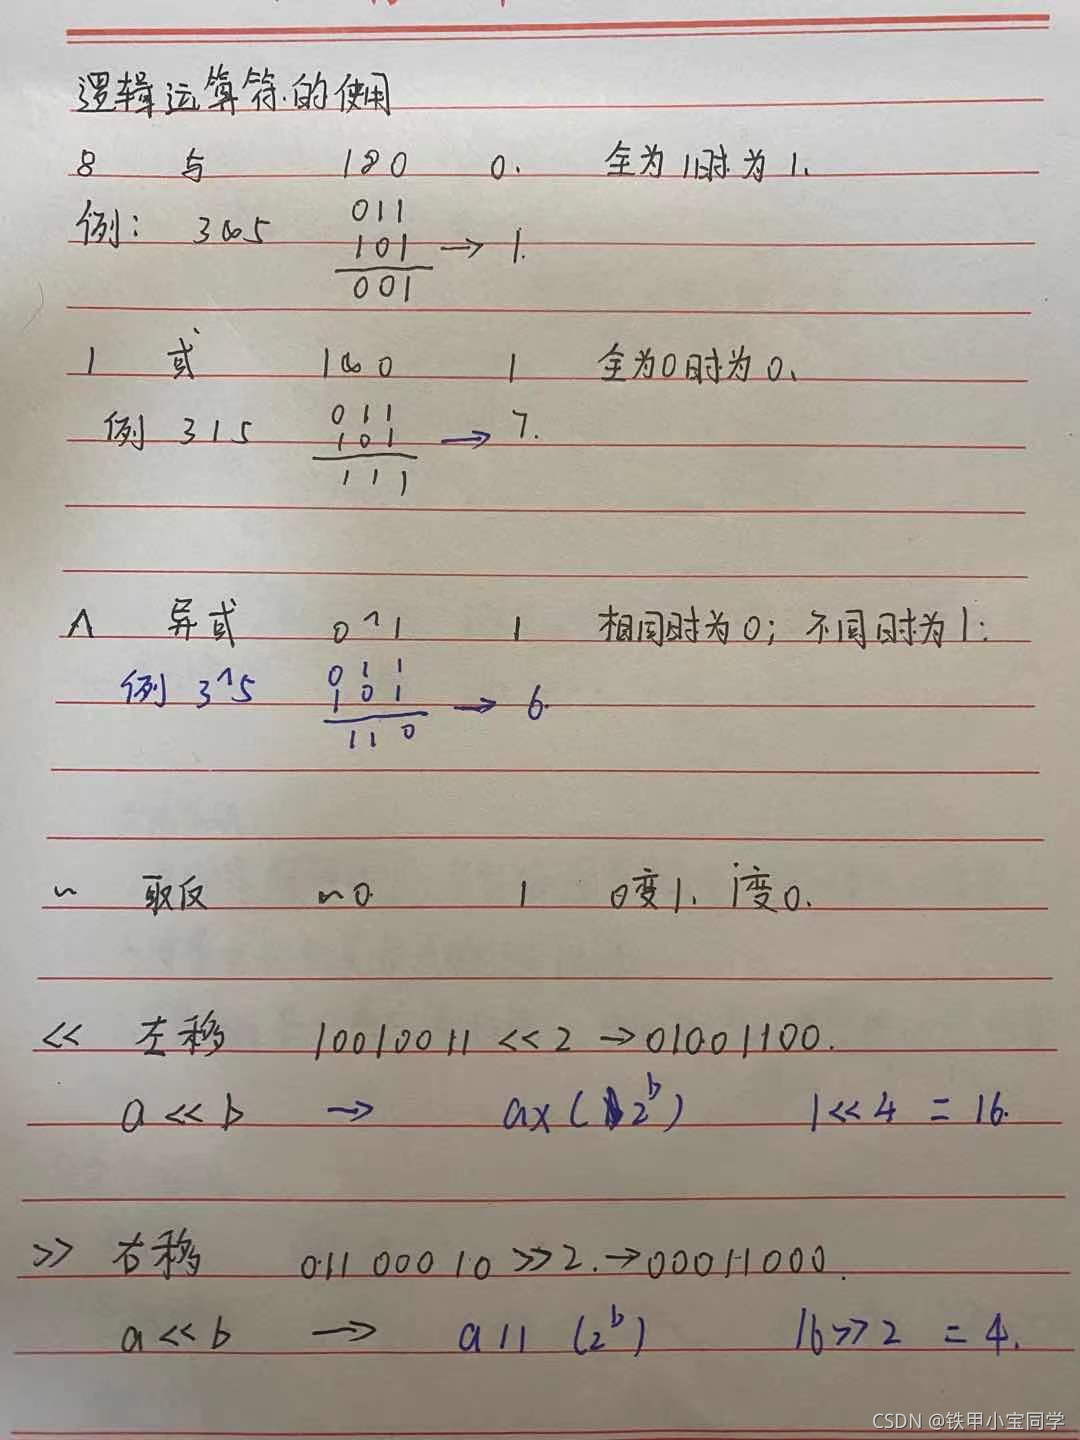 逻辑运算符的使用
& 与 1&0 0. 全为1时为1.
例: 3&5 011
101 → 1.
001
| 或 1&0 1 全为0时为0.
例 3|5 011
101 → 7.
111
^ 异或 0^1 1 相同时为0; 不同时为1:
例 3^5 011
101 → 6.
110
~ 取反 ~0. 1 0变1. 1变0.
<< 左移 10010011 <<2 → 01001100.
a << b → ax(2^b) 1<<4 = 16.
>> 右移 01100010 >>2. → 00011000.
a << b → a // (2^b) 16>>2 = 4.
CSDN @铁甲小宝同学